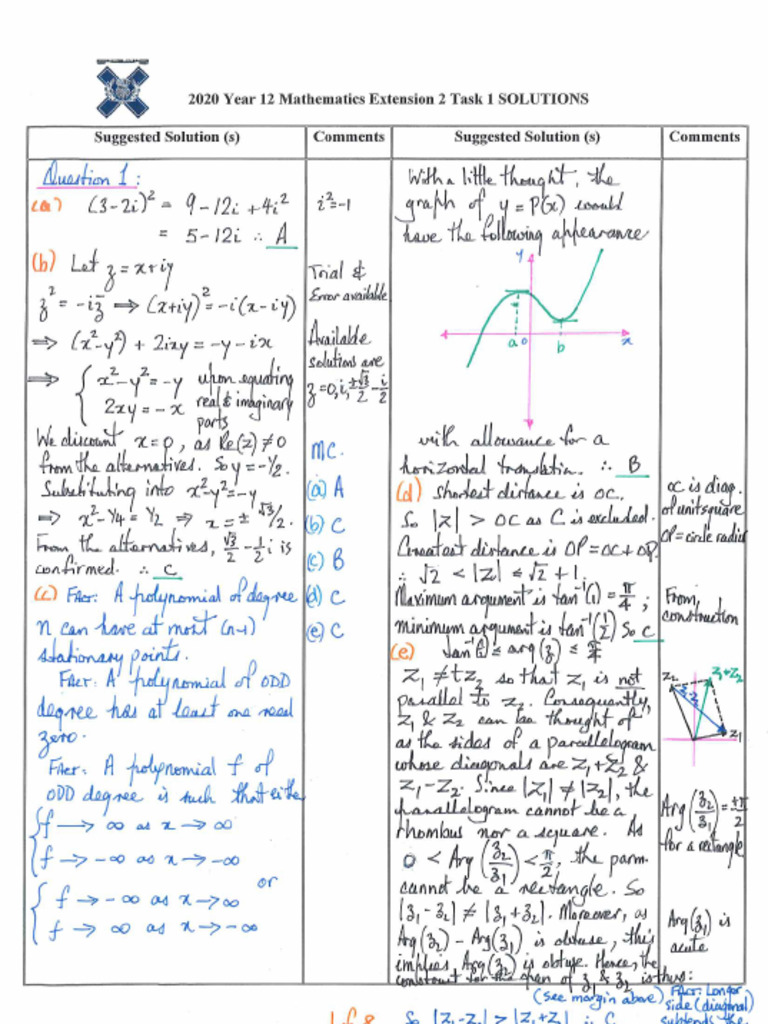 2020 Year 12 Mathematics Extension 2 Task 1 SOLUTIONS
Suggested Solution (s)
Comments
Question 1:
(a) (3-2i)² = 9-12i+4i²
= 5-12i ∴ A
(b) Let z = x+iy
z² = -iz̄ ⟹ (x+iy)² = -i(x-iy)
⟹ (x²-y²) + 2ixy = -y-ix
⟹ { x²-y² = -y upon equating
2xy = -x real & imaginary
parts
We discount x=0, as Re(z) ≠ 0
from the alternatives. So y = -1/2.
Substituting into x²-y²=-y
⟹ x²-1/4 = 1/2 ⟹ x = ± √3/2.
From the alternatives, √3/2 - 1/2 i is
confirmed. ∴ C
(c) FACT: A polynomial of degree
n can have at most (n-1)
stationary points.
FACT: A polynomial of ODD
degree has at least one real
zero.
FACT: A polynomial f of
ODD degree is such that either
{ f → ∞ as x → ∞
f → -∞ as x → -∞
or
{ f → -∞ as x → ∞
f → ∞ as x → -∞
i²=-1
Trial &
Error available
Available
solutions are
z=0, i, ±√3/2 - i/2
MC.
(a) A
(b) C
(c) B
(d) C
(e) C
Suggested Solution (s)
Comments
With a little thought, the
graph of y = P(x) would
have the following appearance
y
a 0 b x
with allowance for a
horizontal translation. ∴ B
(d) Shortest distance is OC.
So |z| > OC as C is excluded.
Greatest distance is OP = OC + CP.
∴ √2 < |z| ≤ √2 + 1.
Maximum argument is tan⁻¹(1) = π/4;
minimum argument is tan⁻¹(1/2) So C
tan⁻¹(1/2) ≤ arg(z) ≤ π/4
(e)
z₁ ≠ tz₂ so that z₁ is not
parallel to z₂. Consequently,
z₁ & z₂ can be thought of
as the sides of a parallelogram
whose diagonals are z₁+z₂ &
z₁-z₂. Since |z₁| ≠ |z₂|, the
parallelogram cannot be a
rhombus nor a square. As
0 < Arg(z₂/z₁) < π/2, the parm.
cannot be a rectangle. So
|z₁-z₂| ≠ |z₁+z₂|. Moreover, as
Arg(z₂) - Arg(z₁) is obtuse, this
implies Arg(z₂) is obtuse. Hence, the
z₁ & z₂ is thus:
(see margin above)
So |z₁-z₂| > |z₁+z₂| ∴ C
OC is diag.
of unit square
CP = circle radius
From
construction
z₂ z₁+z₂
z₁-z₂
z₁
Arg(z₂/z₁) = ±π/2
for a rectangle
Arg(z₁) is
acute
FACT: Longer
side (diagonal)
subtends the
1 of 8